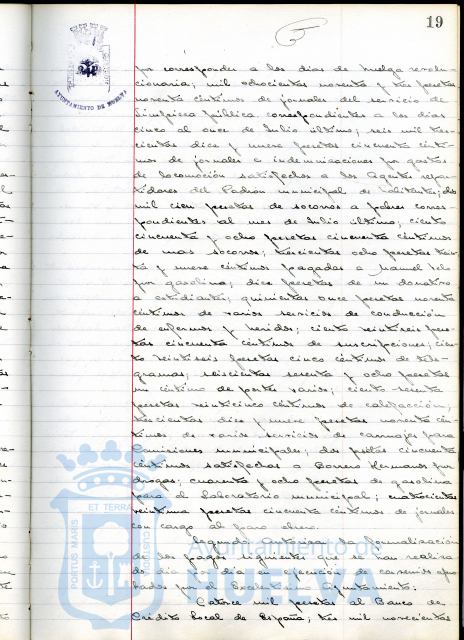 19
AYUNTAMIENTO DE HUELVA
por corresponder a los dias de huelga revolu-
cionaria; mil ochocientas noventa y tres pesetas
noventa céntimos de jornales del servicio de
limpieza pública correspondientes a los dias
cinco al once de Julio último; seis mil tres-
cientas diez y nueve pesetas cincuenta cénti-
mos de jornales e indemnizaciones por gastos
de locomoción satisfechos a los Agentes repar-
tidores del Padron municipal de habitantes; dos
mil cien pesetas de socorros a pobres corres-
pondientes al mes de Julio último; ciento
cincuenta y ocho pesetas cincuenta céntimos
de mas socorros; trescientas ocho pesetas trein-
ta y nueve céntimos pagadas a Manuel
por gasolina; diez pesetas de un donativo
a estudiantes; quinientas once pesetas noventa
céntimos de varios servicios de conducción
de enfermos y heridos; ciento veintiseis pese-
tas cincuenta céntimos de suscripciones; cien-
to veintiseis pesetas cinco céntimos de tele-
gramas; seiscientas sesenta y ocho pesetas
un céntimo de portes varios; ciento sesenta
pesetas veinticinco céntimos de calefacción;
trescientas diez y nueve pesetas noventa cén-
timos de varios servicios de carruajes para
Comisiones municipales; dos pesetas cincuenta
céntimos satisfechos a Borrero Hermanos por
drogas; cuarenta y ocho pesetas de gasolina
para el Laboratorio municipal; cuatrocientas
veintiuna pesetas cincuenta céntimos de jornales
con cargo al paro obrero.
Segundo: autorizar la formalización
de los pagos siguientes que se han realiza-
do dia por dia en ejecución de acuerdos apro-
bados por el Excelentísimo Ayuntamiento:
Catorce mil pesetas al Banco de
Crédito Local de España; tres mil novecientas
PORTUS MARIS
ET TERRAE
CUSTODIA
Ayuntamiento de
HUELVA